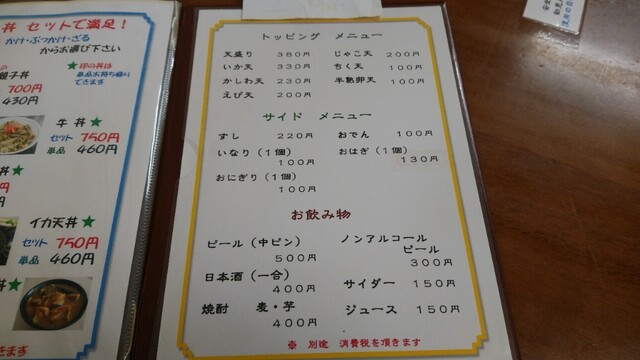 丼 セットで満足！
かけ・ぶっかけ・ざる
からお選び下さい
親子丼
700円
430円
★印の丼は
単品お持ち帰り
できます
牛丼★
セット 750円
単品 460円
イカ天丼★
セット 750円
単品 460円
トッピング メニュー
天盛り 380円 じゃこ天 200円
いか天 330円 ちく天 100円
かしわ天 230円 半熟卵天 100円
えび天 200円
サイド メニュー
すし 220円 おでん 100円
いなり（1個） おはぎ（1個）
100円 130円
おにぎり（1個）
100円
お飲み物
ビール（中ビン） ノンアルコール
ビール
500円 300円
日本酒（一合） サイダー 150円
400円
焼酎 麦・芋 ジュース 150円
400円
※ 別途 消費税を頂きます